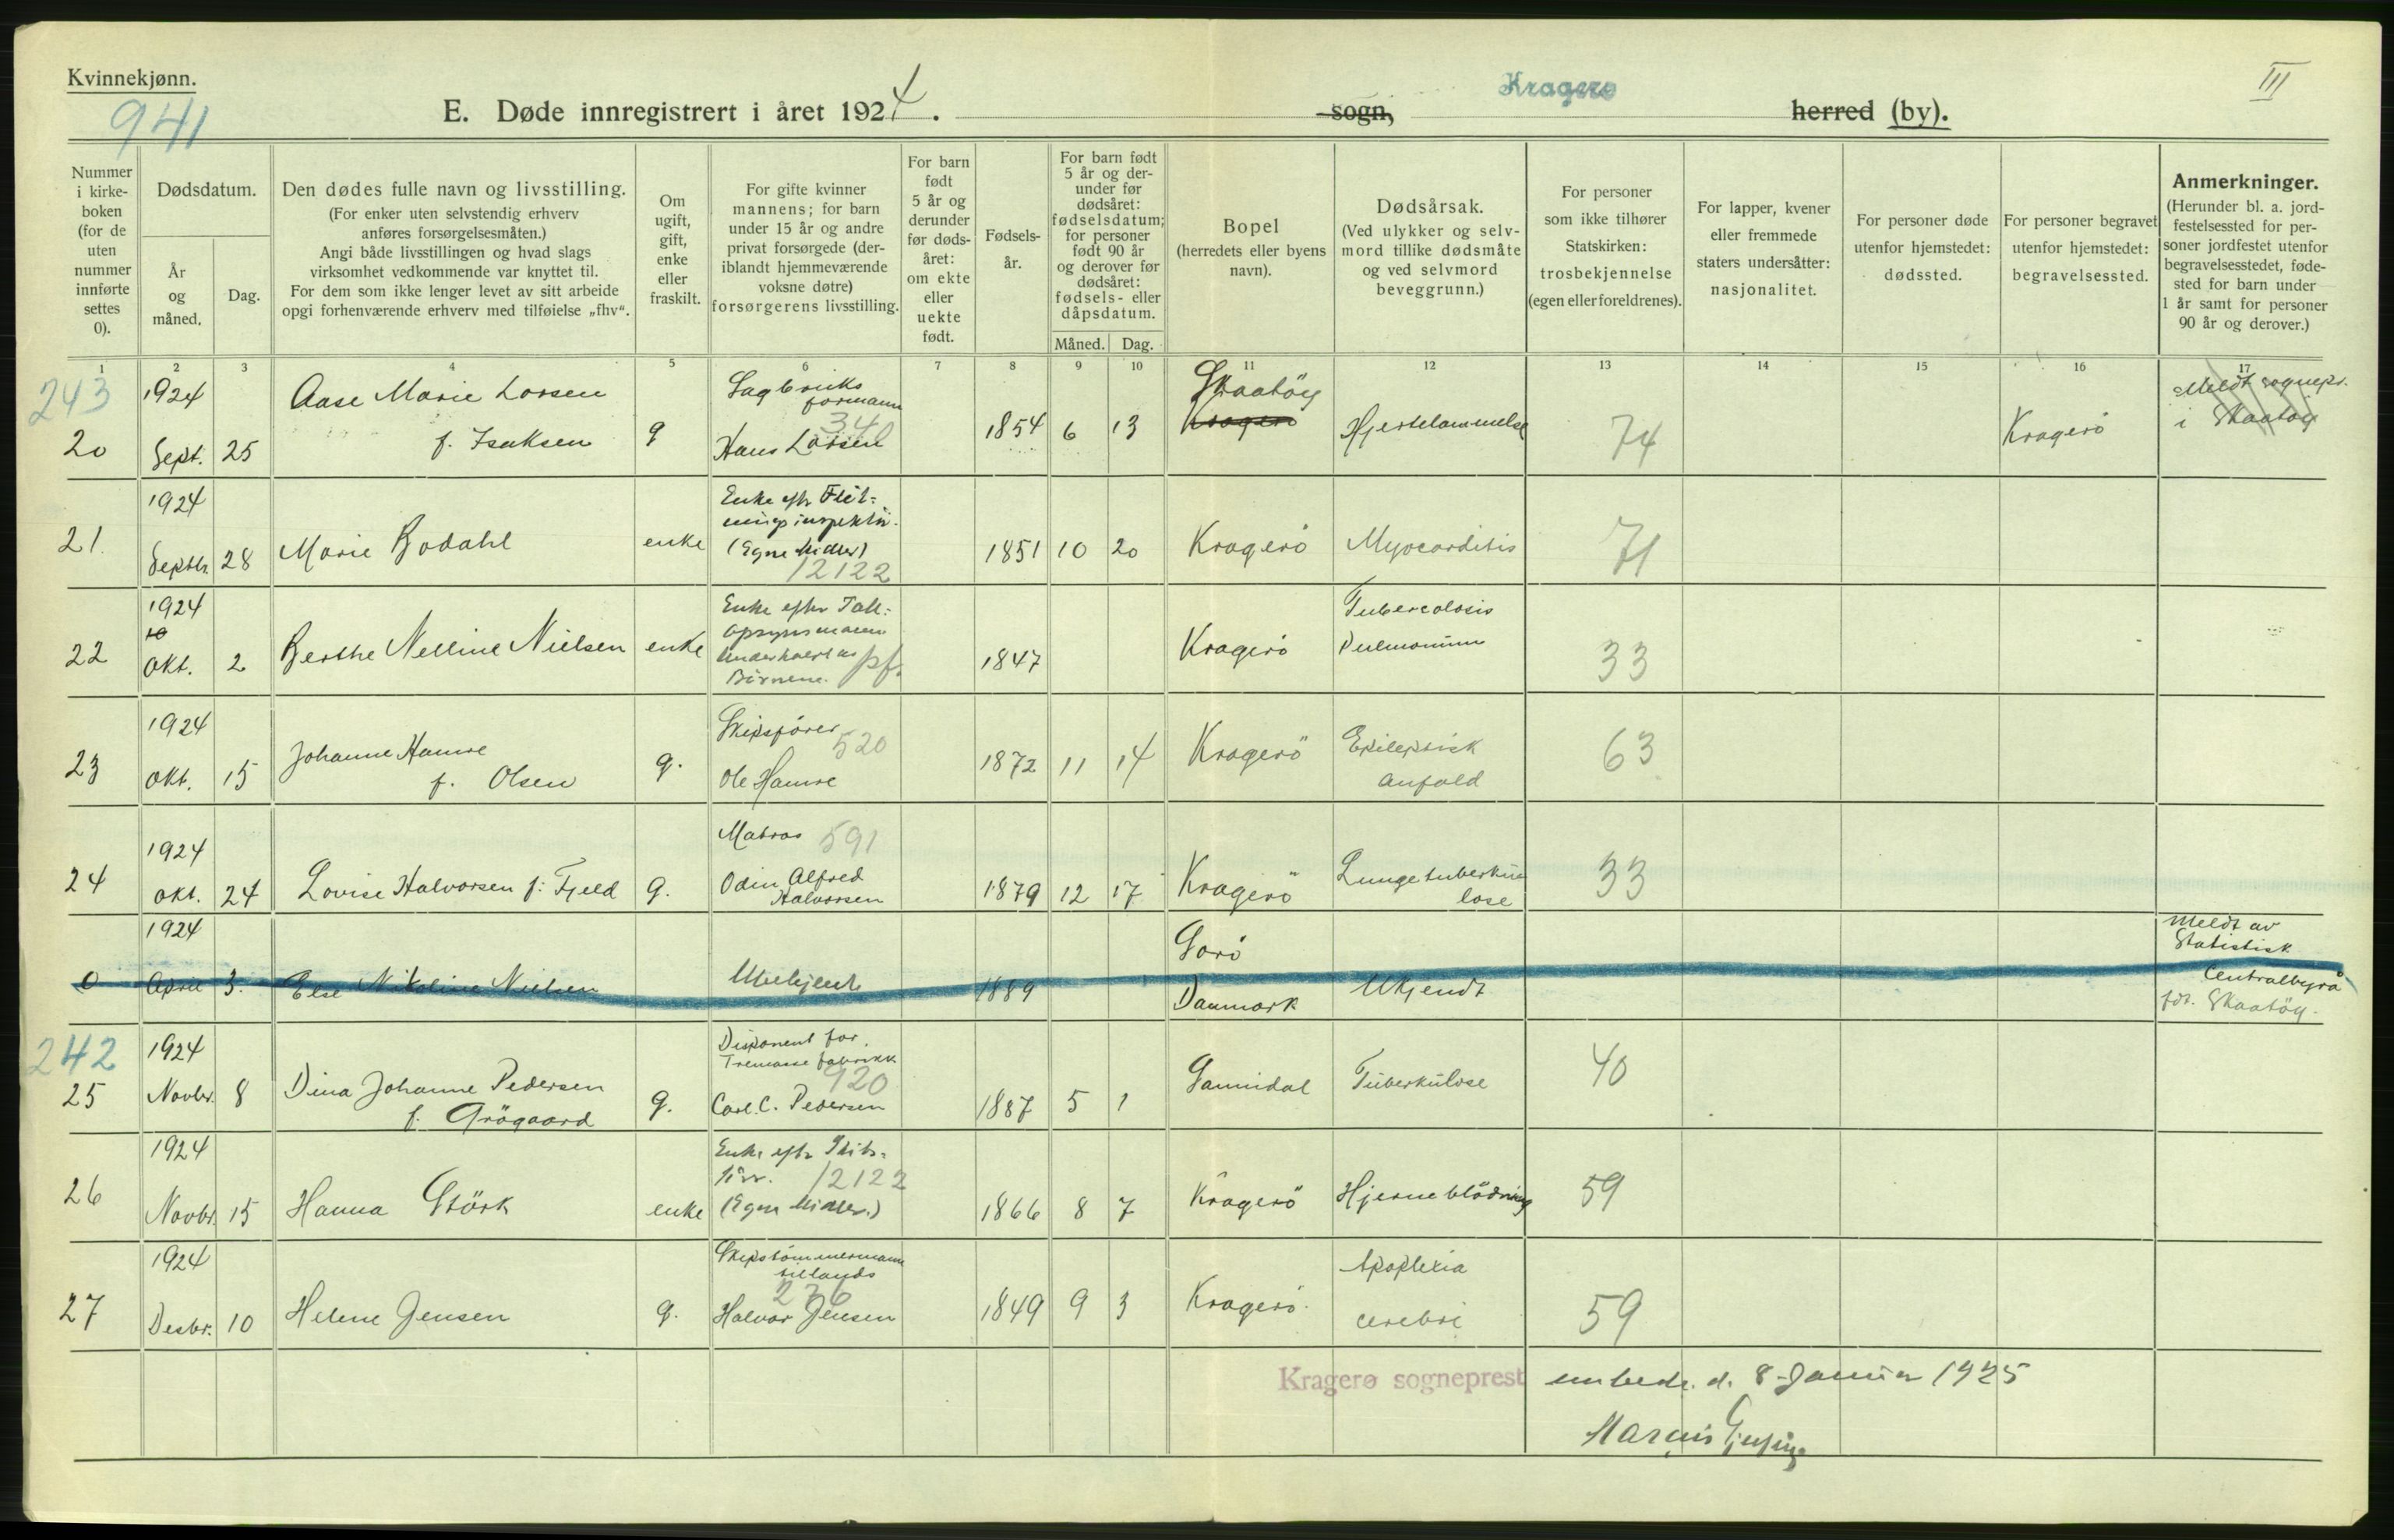 Kvinnekjønn.
941
III
E. Døde innregistrert i året 1924. sogn, Kragerø herred (by).
Nummer i kirkeboken (for de uten nummer innførte settes 0).
Dødsdatum.
År og måned.
Dag.
Den dødes fulle navn og livsstilling.
(For enker uten selvstendig erhverv anføres forsørgelsesmåten.)
Angi både livsstillingen og hvad slags virksomhet vedkommende var knyttet til.
For dem som ikke lenger levet av sitt arbeide opgi forhenværende erhverv med tilføielse „fhv“.
Om ugift, gift, enke eller fraskilt.
For gifte kvinner mannens; for barn under 15 år og andre privat forsørgede (deriblandt hjemmeværende voksne døtre) forsørgerens livsstilling.
For barn født 5 år og derunder før dødsåret: om ekte eller uekte født.
Fødselsår.
For barn født 5 år og derunder før dødsåret: fødselsdatum; for personer født 90 år og derover før dødsåret: fødsels- eller dåpsdatum.
Måned. Dag.
Bopel
(herredets eller byens navn).
Dødsårsak.
(Ved ulykker og selvmord tillike dødsmåte og ved selvmord beveggrunn.)
For personer som ikke tilhører Statskirken: trosbekjennelse (egen eller foreldrenes).
For lapper, kvener eller fremmede staters undersåtter: nasjonalitet.
For personer døde utenfor hjemstedet: dødssted.
For personer begravet utenfor hjemstedet: begravelsessted.
Anmerkninger.
(Herunder bl. a. jordfestelsessted for personer jordfestet utenfor begravelsesstedet, fødested for barn under 1 år samt for personer 90 år og derover.)
1 2 3 4 5 6 7 8 9 10 11 12 13 14 15 16 17
243
20 1924 Sept. 25 Aase Marie Larsen f. Isaksen g Sagbruksformann 34 Hans Larsen 1854 6 13 Skaatöy Kragerö Hjertelammelse 74 Kragerö Meldt sognepr. i Skaatöy
21. 1924 Septbr. 28 Marie Bodahl enke Enke eftr (Egne Midler) 12122 1851 10 20 Kragerö Myocarditis 71
22 1924 10 Okt. 2 Berthe Nelline Nielsen enke Enke efter pf. 1847 Kragerö Tuberculosis Pulmonum 33
23 1924 Okt. 15 Johanne Hamre f. Olsen g. Skipsförer 520 Ole Hamre 1872 11 14 Kragerö Epileptisk anfald 63
24 1924 Okt. 24 Lovise Halvorsen f. Fjeld g. Matros 591 Odin Alfred Halvorsen 1879 12 17 Kragerö Lungetuberkulose 33
0 1924 April 3. Else Nikoline Nielsen Ukjent 1889 Sorö Danmark Ukjendt Meldt av Statistisk Centralbyrå fdt. Skaatöy.
242
25 1924 Novbr. 8 Dina Johanne Pedersen f. Grögaard g. Disponent for Tremassefabrikk 920 Carl C. Pedersen 1887 5 1 Sannidal Tuberkulose 40
26 1924 Novbr. 15 Hanna Störk enke Enke eftr 12122 (Egne Midler.) 1866 8 7 Kragerö Hjerneblödning 59
27 1924 Desbr. 10 Helene Jensen g. Skipstömmermann tillands 276 Halvor Jensen 1849 9 3 Kragerö. Apoplexia cerebri 59
Kragerø sogneprest embede. d. 8 Januar 1925